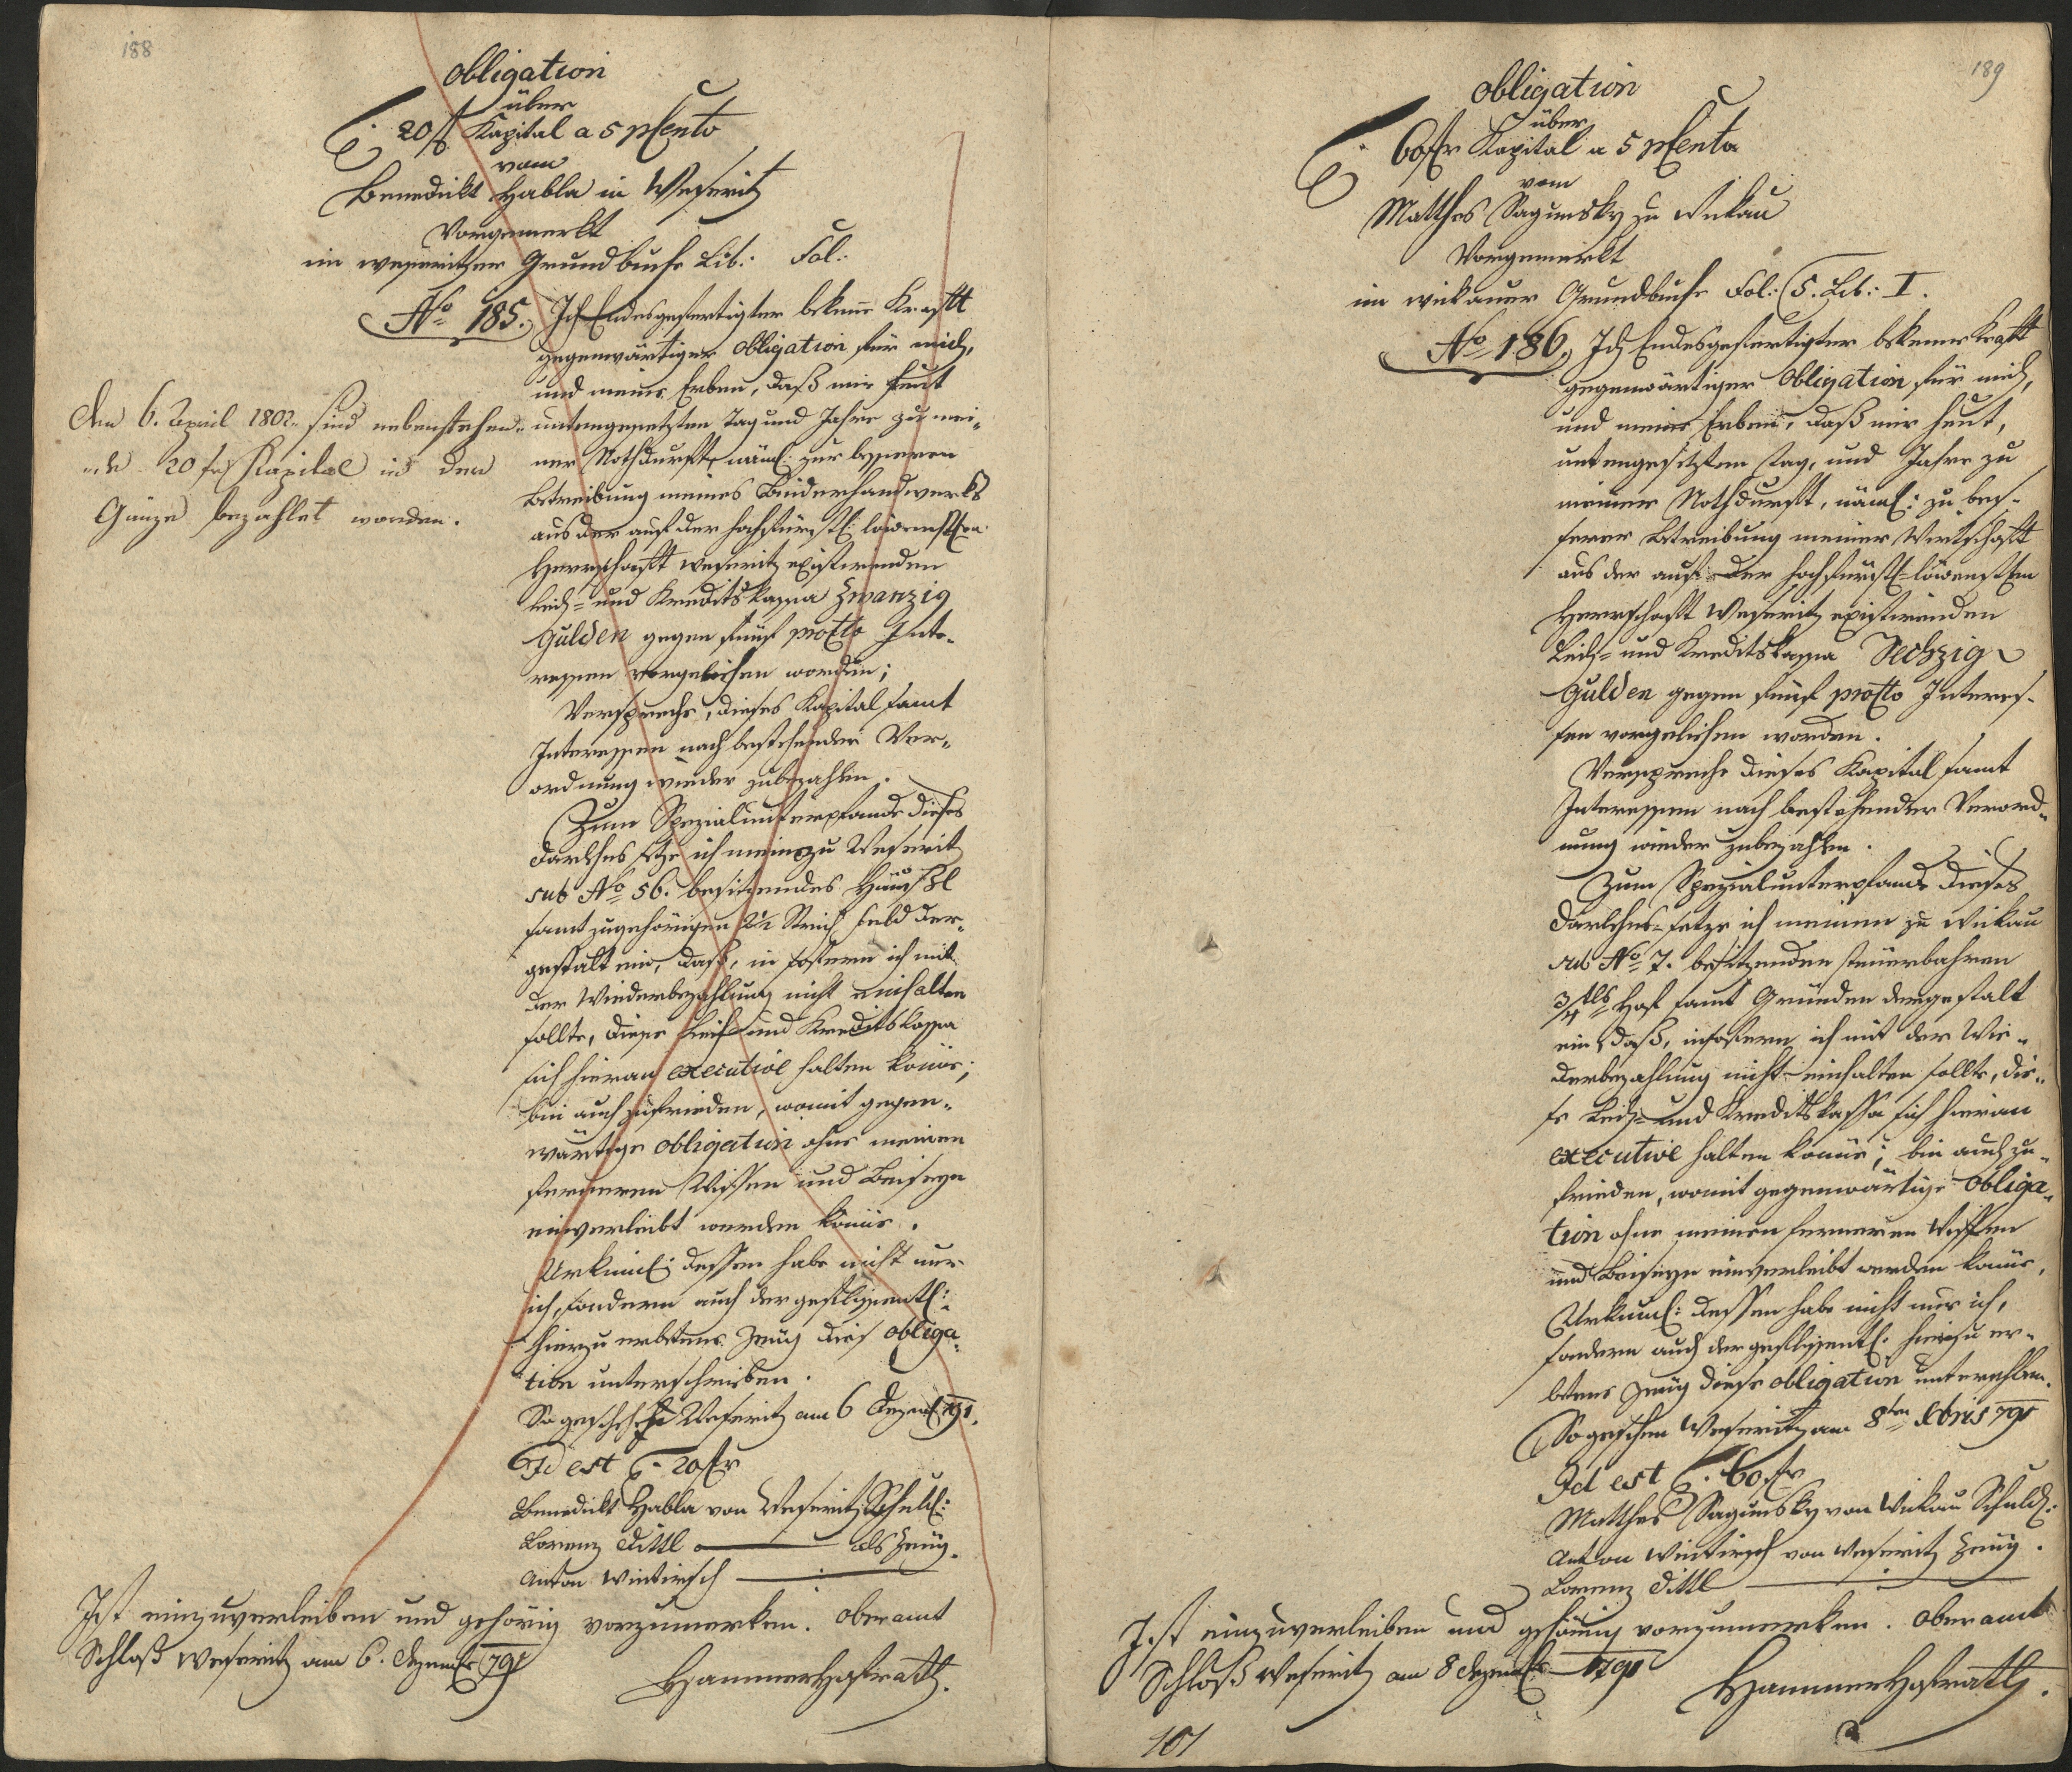 188
Obligation
über
20 fl Kapital a 5 pCento
vom
Benedickt Habla in Weseritz
Vorgemerkt
im weseritzer Grundbuche Lib: Fol:
No 185. Ich Endesgefertigter bekeñe Krafft
gegenwärtiger Obligation für mich,
und meine Erben, daß mir heut
untengesetzten Tag und Jahre zu mei-
ner Nothdurft, näml: zur besseren
Betreibung meines Binderhandwerks
aus der auf der hochfürstl: löwenst:en
Herrschaft Weseritz existirenden
Leih- und Kreditskassa Zwanzig
Gulden gegen fünf procto Inte-
ressen vorgeliehen worden;
Verspreche, dieses Kapital samt
Interessen nach bestehender Ver-
ordnung wieder zubezahlen.
Zum Spezialunterpfande dieses
Darlehns setze ich mein zu Weseritz
sub No 56. besitzendes Häusl
samt zugehörigen 2½ Strich Feld der-
gestalt ein, daß, in sofern ich mit
der Wiederbezahlung nicht einhalten
sollte, diese Leih- und Kreditskassa
sich hieran executive halten köñe;
bin auch zufrieden, womit gegen-
wärtige Obligation ohne meinen
ferneren Wissen und Beiseyn
einverleibt werden köñe.
Urkundl: dessen habe nicht nur
ich, sondern auch der geflissentl:
hierzu erbetene Zeug dies Obliga-
tion unterschrieben.
So geschehen Weseritz am 6 Dezemb 791.
Id est 20 fl
Benedickt Habla von Weseritz Schuld:
Lorenz Dittl als Zeug.
Anton Wintirsch
den 6. April 1802. sind nebenstehen-
de 20 f Kapital in der
Gänze bezahlet worden.
Ist einzuverleiben und gehörig vorzumerken. Oberamt
Schloß Weseritz am 6. Dezember 791
Hammer Hofrath.
189
Obligation
über
60 fl Kapital a 5 pCento
vom
Matthes Sagunsky zu Wickau
Vorgemerkt
im wickauer Grundbuche Fol: 5. Lib: I.
No 186. Ich Endesgefertigter bekenne Kraft
gegenwärtiger Obligation für mich,
und meine Erben, daß mir heut,
untengesetzten Tag, und Jahre zu
meiner Nothdurft, näml: zu bes-
serer Betreibung meiner Wirtschaft
aus der auf der hochfürstl- löwenst:en
Herrschaft Weseritz existirenden
Leih- und Kreditskassa Sechzig
Gulden gegen fünf procto Interes-
sen vorgeliehen worden.
Verspreche dieses Kapital samt
Interessen nach bestehender Verord-
nung wieder zubezahlen.
Zum Spezialunterpfande dieses
Darlehns setze ich meinen zu Wickau
sub No 7. besitzenden steuerbahren
3/4tls Hof samt Gründen dergestalt
ein, daß, insofern ich mit der Wie-
derbezahlung nicht einhalten sollte, die-
se Leih- und Kreditskassa sich hieran
executive halten köñe; bin auch zu-
frieden, womit gegenwärtige Obliga-
tion ohne meinen ferneren Wissen
und Beiseyn einverleibt werden köñe.
Urkundl: dessen habe nicht nur ich,
sondern auch der geflissentl: hierzu er-
betene Zeug diese Obligation
So geschehen Weseritz am 8ten Xbris 791
Id est 60 fl
Matthes Sagunsky von Wickau Schuld:
Anton Wintirsch von Weseritz Zeug.
Lorenz Dittl
Ist einzuverleiben und gehörig vorzumerken. Oberamt
Schloß Weseritz am 8 Dezember 1791
Hammer Hofrath.
101